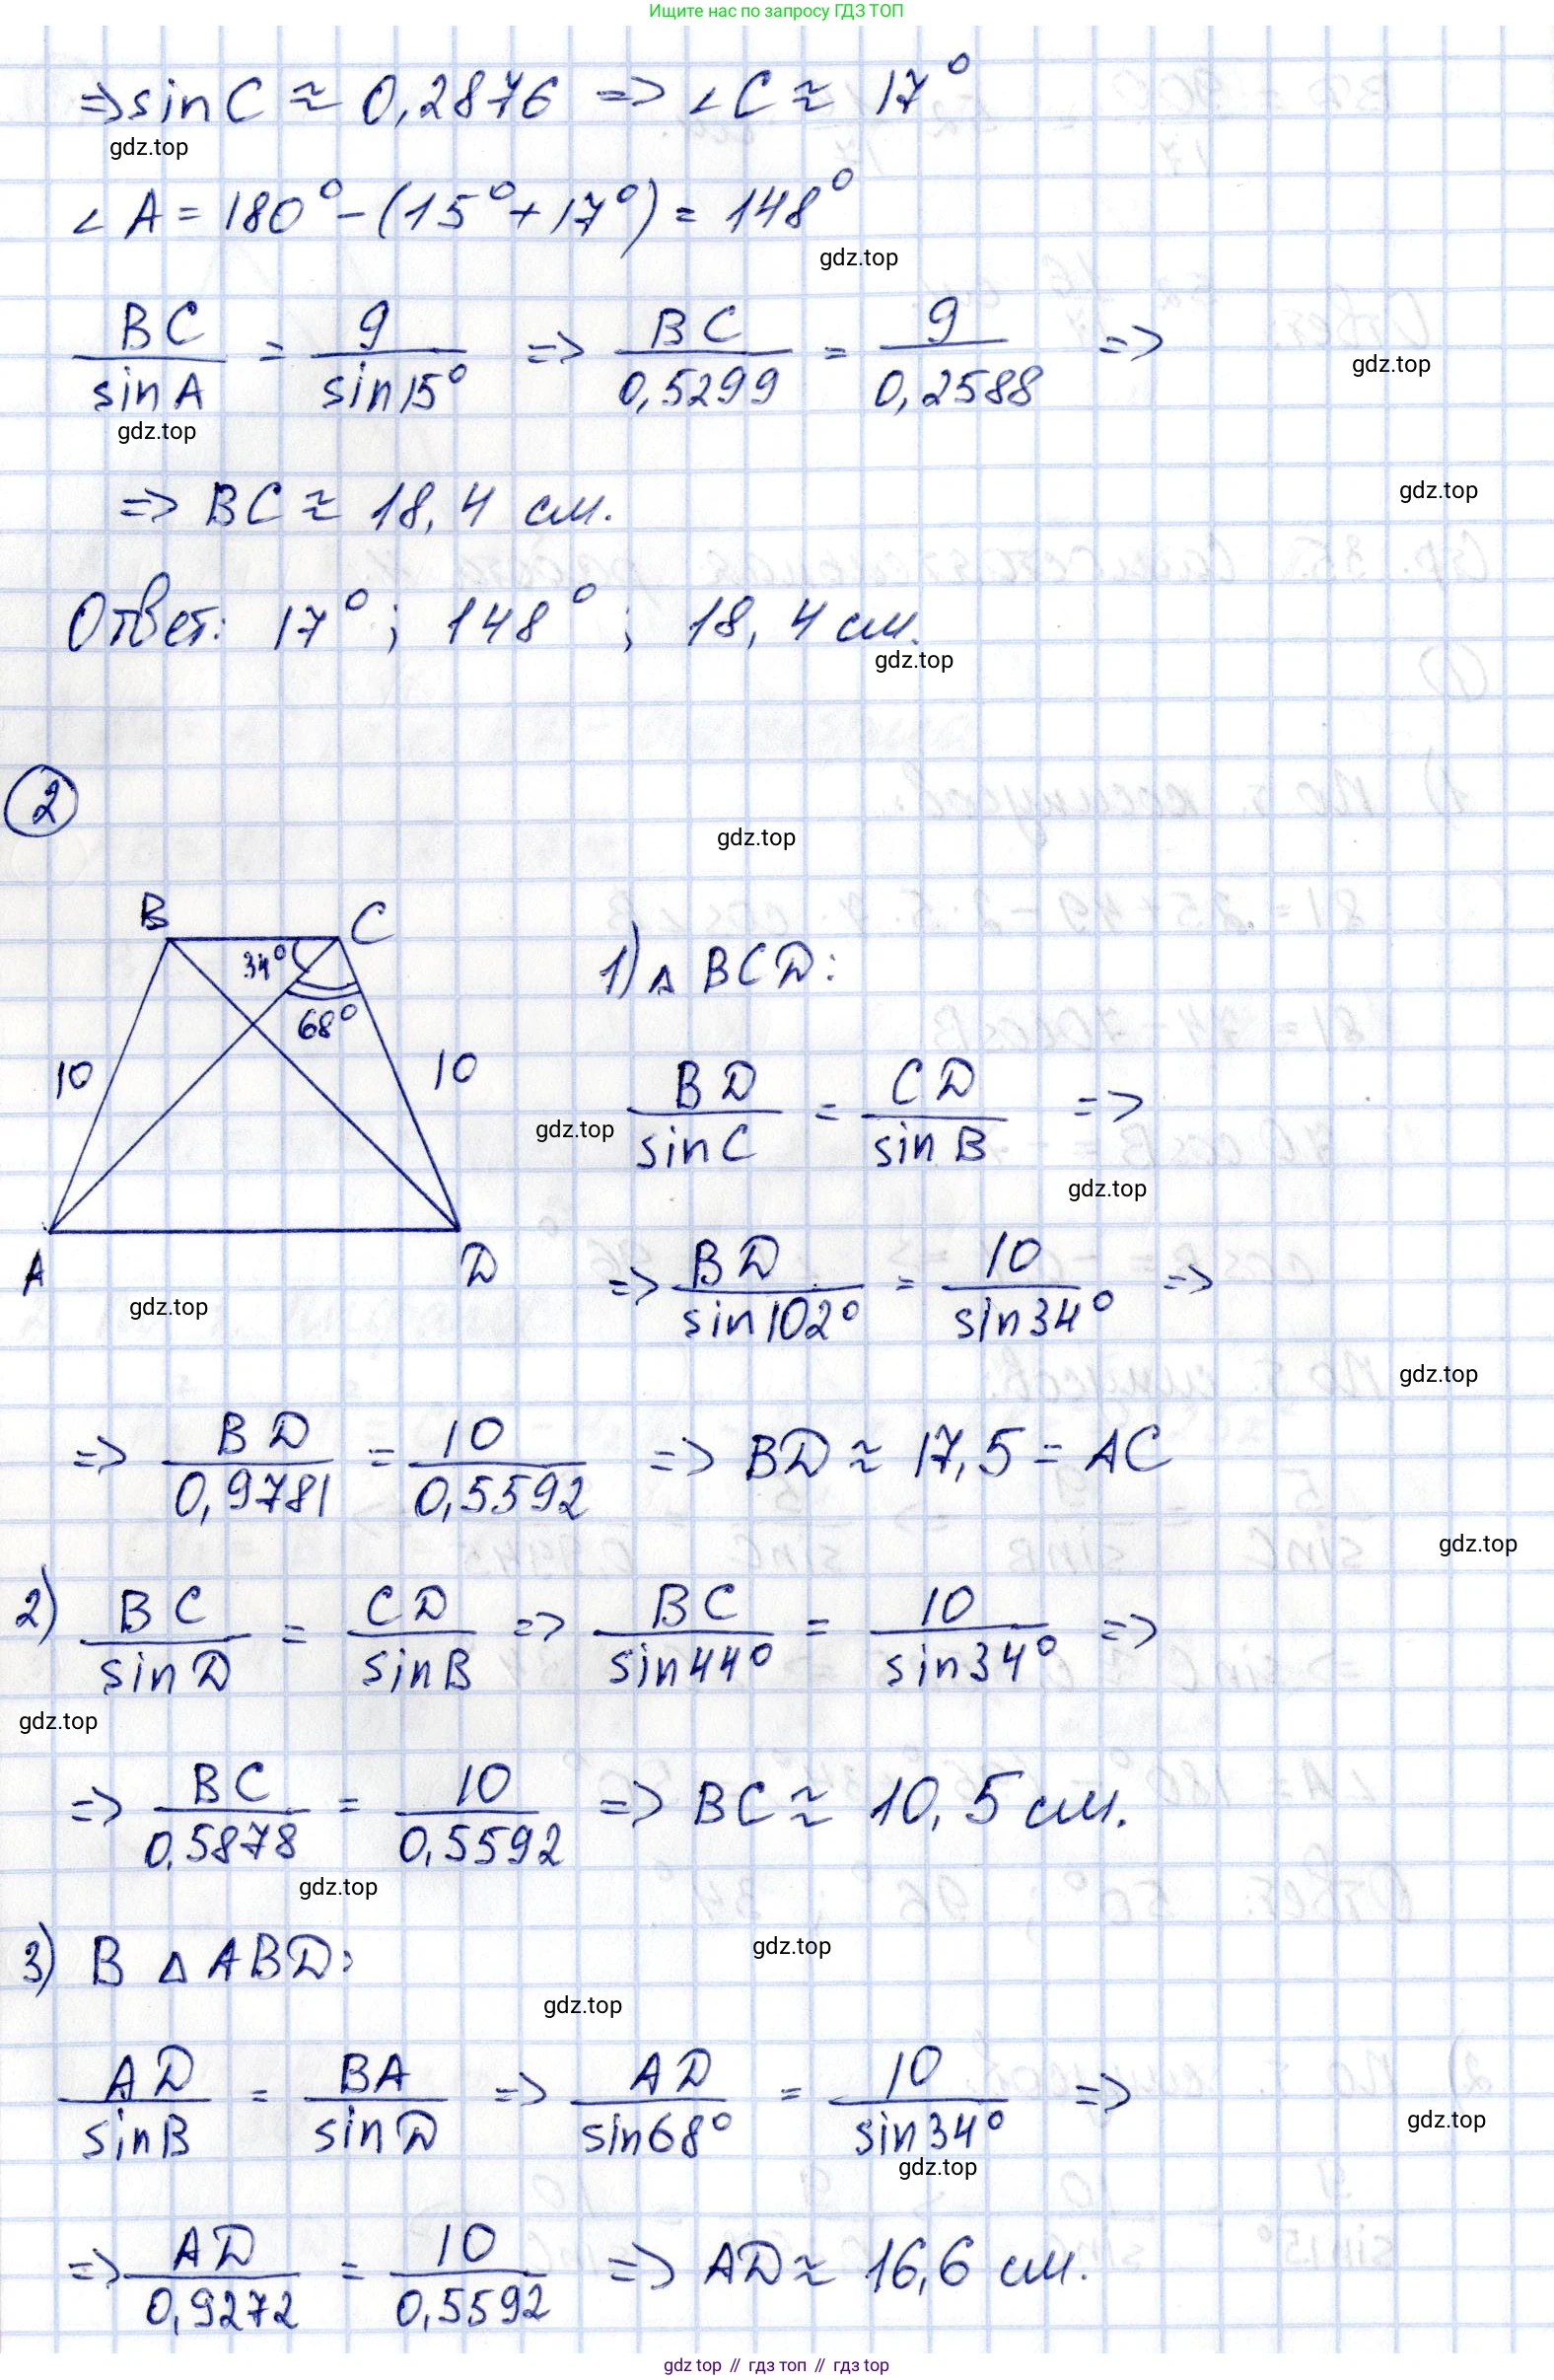 Ищите нас по запросу ГДЗ ТОП
=> sin C ≈ 0,2876 => ∠C ≈ 17°
gdz.top
∠A = 180° - (15° + 17°) = 148°
gdz.top
BC/sin A = 9/sin 15° => BC/0,5299 = 9/0,2588 =>
gdz.top
gdz.top
=> BC ≈ 18,4 см.
gdz.top
Ответ: 17°; 148°; 18,4 см.
gdz.top
2
gdz.top
B C
34°
68°
10 10
A D
gdz.top
1) △ BCD:
BD/sin C = CD/sin B =>
gdz.top
gdz.top
=> BD/sin 102° = 10/sin 34° =>
gdz.top
=> BD/0,9781 = 10/0,5592 => BD ≈ 17,5 = AC
gdz.top
2) BC/sin D = CD/sin B => BC/sin 44° = 10/sin 34° =>
gdz.top
=> BC/0,5878 = 10/0,5592 => BC ≈ 10,5 см.
gdz.top
3) В △ ABD:
gdz.top
gdz.top
AD/sin B = BA/sin D => AD/sin 68° = 10/sin 34° =>
gdz.top
gdz.top
=> AD/0,9272 = 10/0,5592 => AD ≈ 16,6 см.
gdz top // гдз топ // гдз top